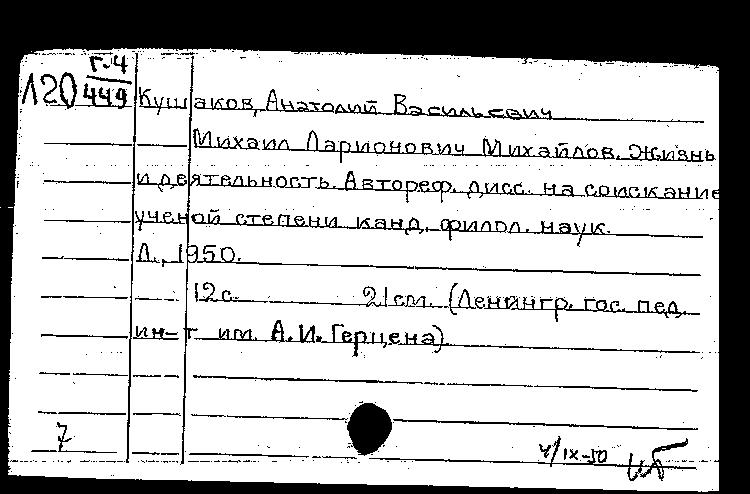 Г.4
Л20 449 Кушаков, Анатолий Васильевич
Михаил Ларионович Михайлов. Жизнь
и деятельность. Автореф. дисс. на соискание
ученой степени канд. филол. наук.
Л., 1950.
12с. 21см. (Ленингр. гос. пед.
ин-т им. А.И. Герцена).
7
4/IX-50